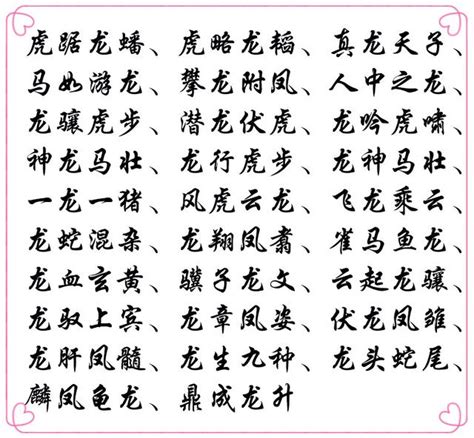 虎踞龙蟠、虎略龙韬、真龙天子、
马如游龙、攀龙附凤、人中之龙、
龙骧虎步、潜龙伏虎、龙吟虎啸、
神龙马壮、龙行虎步、龙神马壮、
一龙一猪、风虎云龙、飞龙乘云、
龙蛇混杂、龙翔凤翥、雀马鱼龙、
龙血玄黄、骥子龙文、云起龙骧、
龙驭上宾、龙章凤姿、伏龙凤雏、
龙肝凤髓、龙生九种、龙头蛇尾、
麟凤龟龙、鼎成龙升